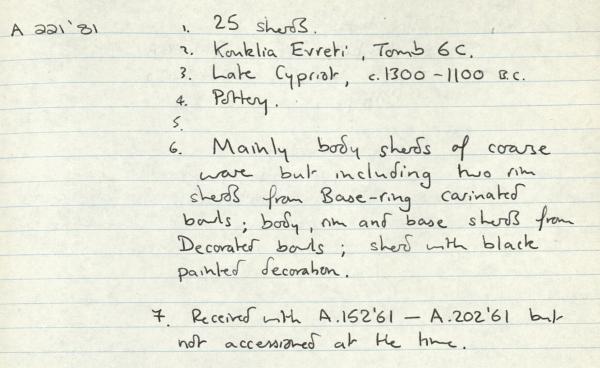 A 221'81 1. 25 sherds.
2. Kouklia Evreti, Tomb 6C.
3. Late Cypriot, c.1300-1100 B.C.
4. Pottery.
5.
6. Mainly body sherds of coarse
ware but including two rim
sherds from Base-ring carinated
bowls; body, rim and base sherds from
Decorated bowls; sherd with black
painted decoration.
7. Received with A.152'61 — A.202'61 but
not accessioned at the time.